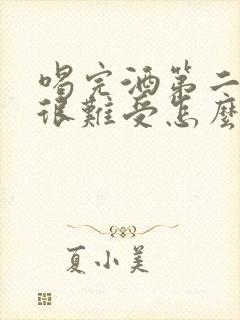 喝完酒第二
很難受怎麼
夏小美